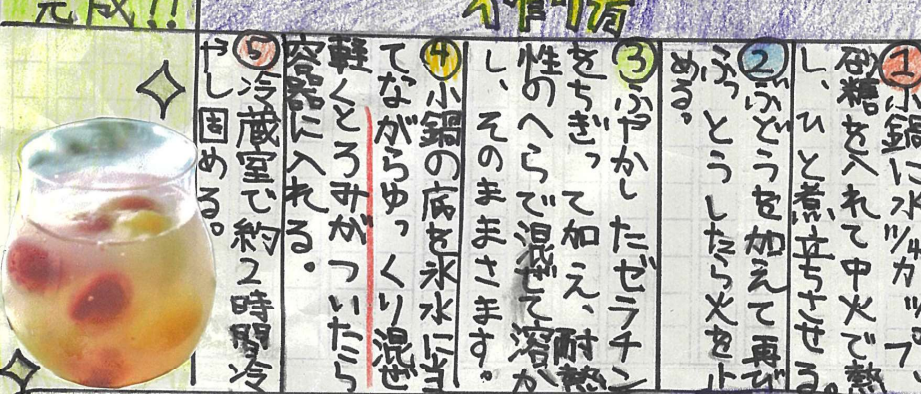 ①小鍋に水
砂糖を入れて中火で熱
し、ひと煮立ちさせる。
②ぶどうを加えて再び
ふっとうしたら火を止
める。
③ふやかしたゼラチン
をちぎって加え、耐熱
性のへらで混ぜて溶か
し、そのままさます。
④小鍋の底を氷水に当
てながらゆっくり混ぜ
軽くとろみがついたら
容器に入れる。
⑤冷蔵室で約2時間冷
やし固める。
完成!!